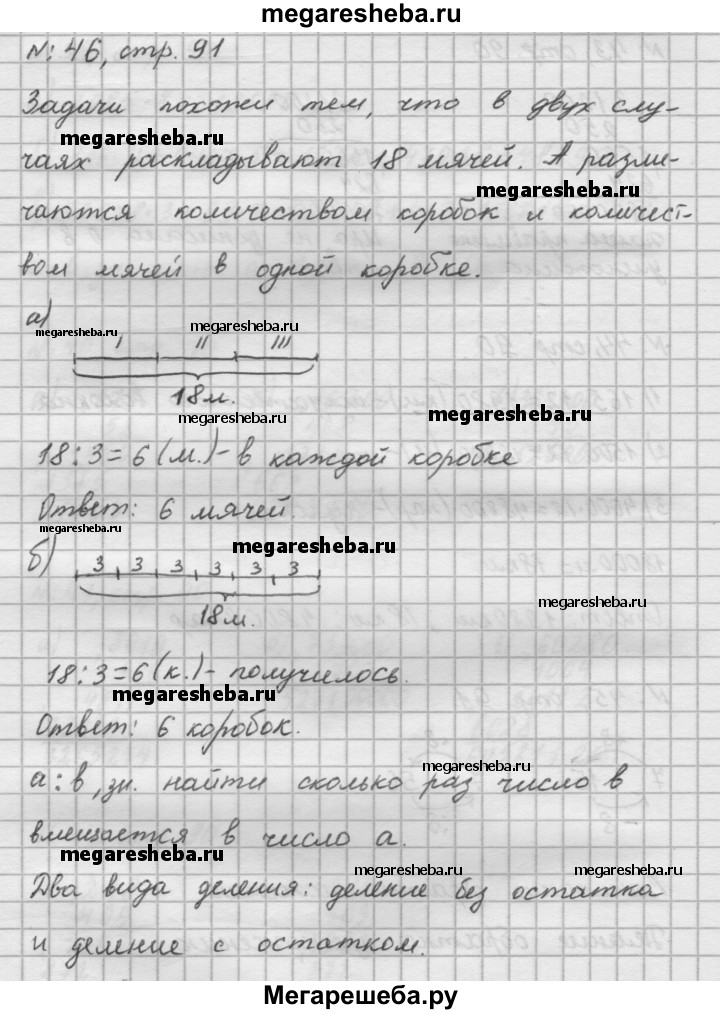 megaresheba.ru
№ 46, стр. 91
Задачи похожи тем, что в двух слу-
megaresheba.ru
чаях раскладывают 18 мячей. А разли-
megaresheba.ru
чаются количеством коробок и количест-
вом мячей в одной коробке.
а)
megaresheba.ru
megaresheba.ru
I II III
18 м.
megaresheba.ru
megaresheba.ru
18 : 3 = 6 (м.) - в каждой коробке
Ответ: 6 мячей.
megaresheba.ru
megaresheba.ru
б) 3 3 3 3 3 3
megaresheba.ru
18 м.
18 : 3 = 6 (к.) - получилось.
megaresheba.ru
Ответ: 6 коробок.
megaresheba.ru
а : в, зн. найти сколько раз число в
вмещается в число а.
megaresheba.ru
megaresheba.ru
Два вида деления: деление без остатка
и деление с остатком.
Мегарешеба.ру